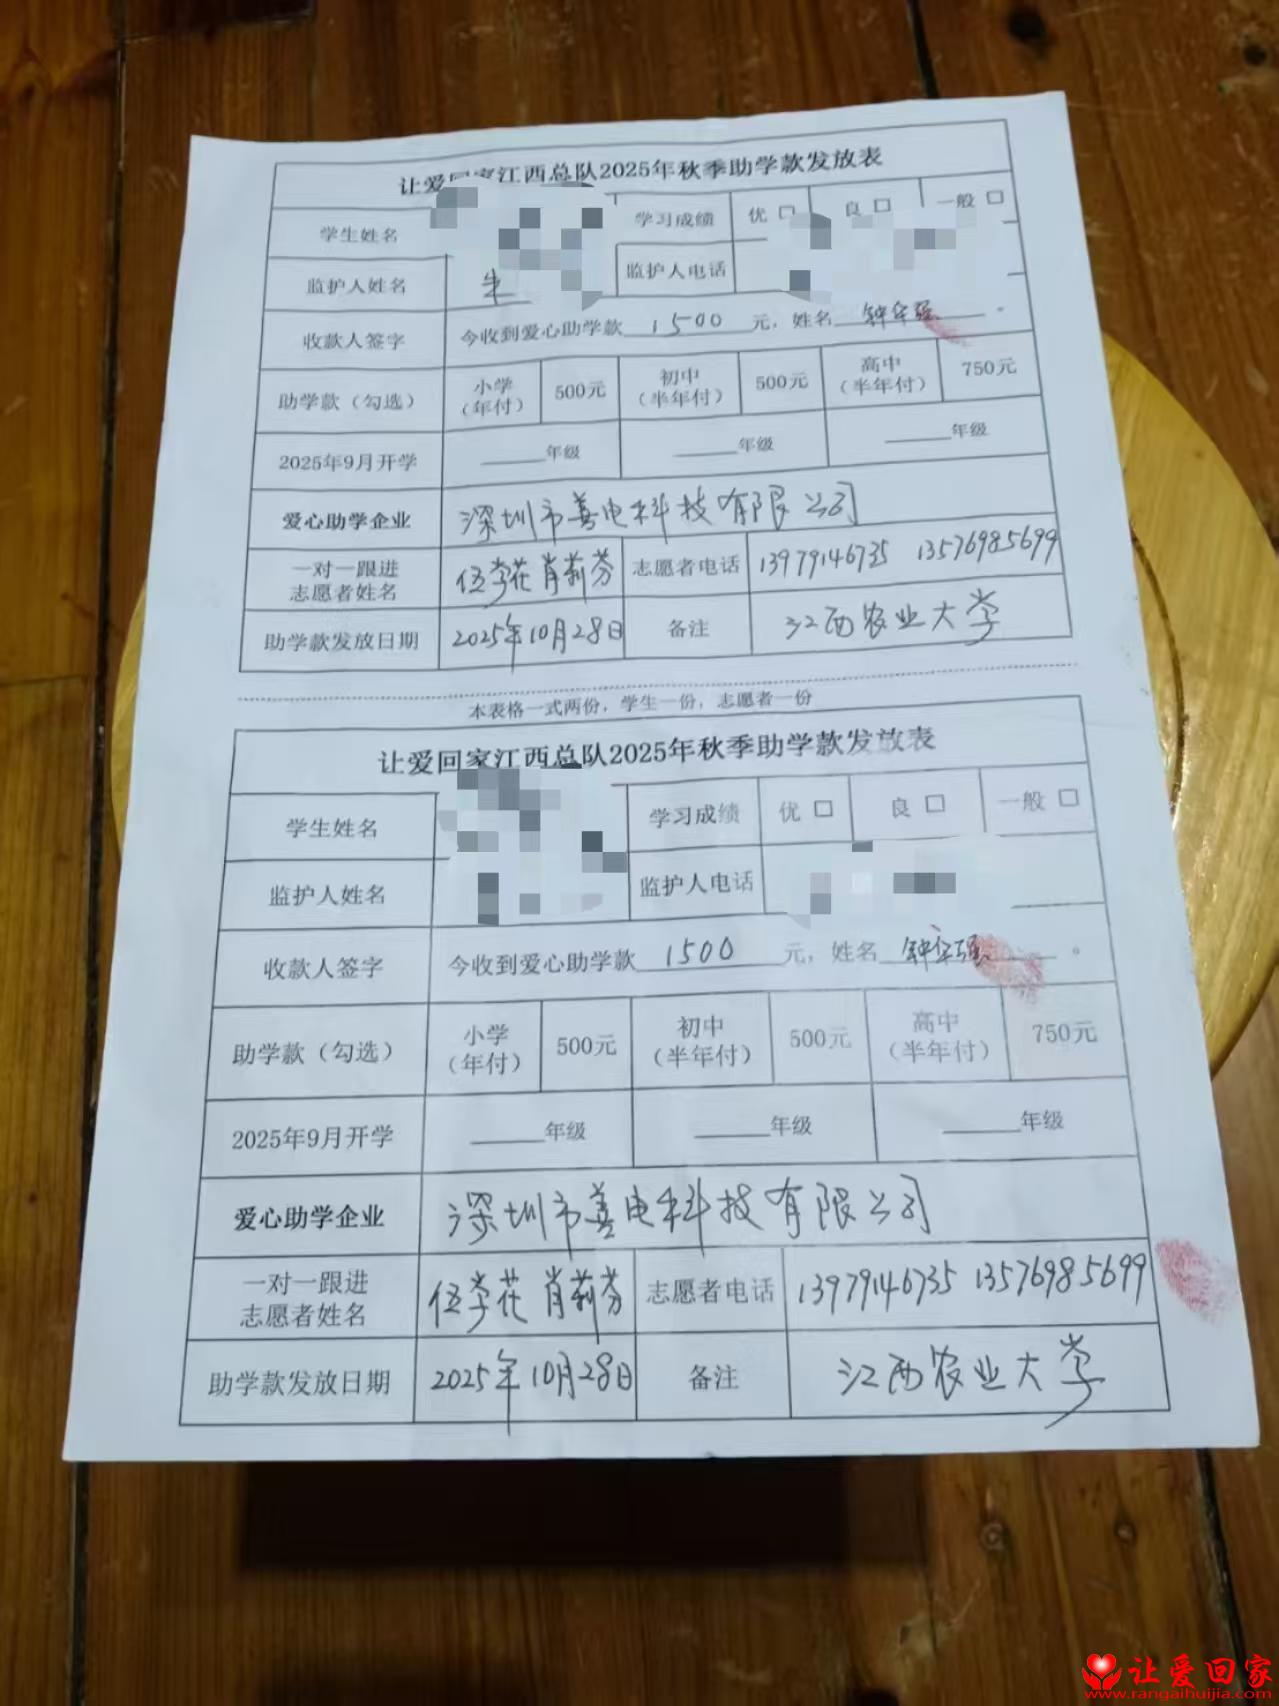 让爱回家江西总队2025年秋季助学款发放表
学生姓名 学习成绩 优 □ 良 □ 一般 □
监护人姓名 朱 监护人电话
收款人签字 今收到爱心助学款 1500 元，姓名 钟 强 。
助学款（勾选） 小学（年付） 500元 初中（半年付） 500元 高中（半年付） 750元
2025年9月开学 ____年级 ____年级 ____年级
爱心助学企业 深圳市善电科技有限公司
一对一跟进志愿者姓名 伍学花 肖莉芬 志愿者电话 13979146735 13576985699
助学款发放日期 2025年10月28日 备注 江西农业大学
本表格一式两份，学生一份，志愿者一份
让爱回家江西总队2025年秋季助学款发放表
学生姓名 学习成绩 优 □ 良 □ 一般 □
监护人姓名 监护人电话
收款人签字 今收到爱心助学款 1500 元，姓名 钟 强 。
助学款（勾选） 小学（年付） 500元 初中（半年付） 500元 高中（半年付） 750元
2025年9月开学 ____年级 ____年级 ____年级
爱心助学企业 深圳市善电科技有限公司
一对一跟进志愿者姓名 伍学花 肖莉芬 志愿者电话 13979146735 13576985699
助学款发放日期 2025年10月28日 备注 江西农业大学
让爱回家
www.rangaihuijia.com